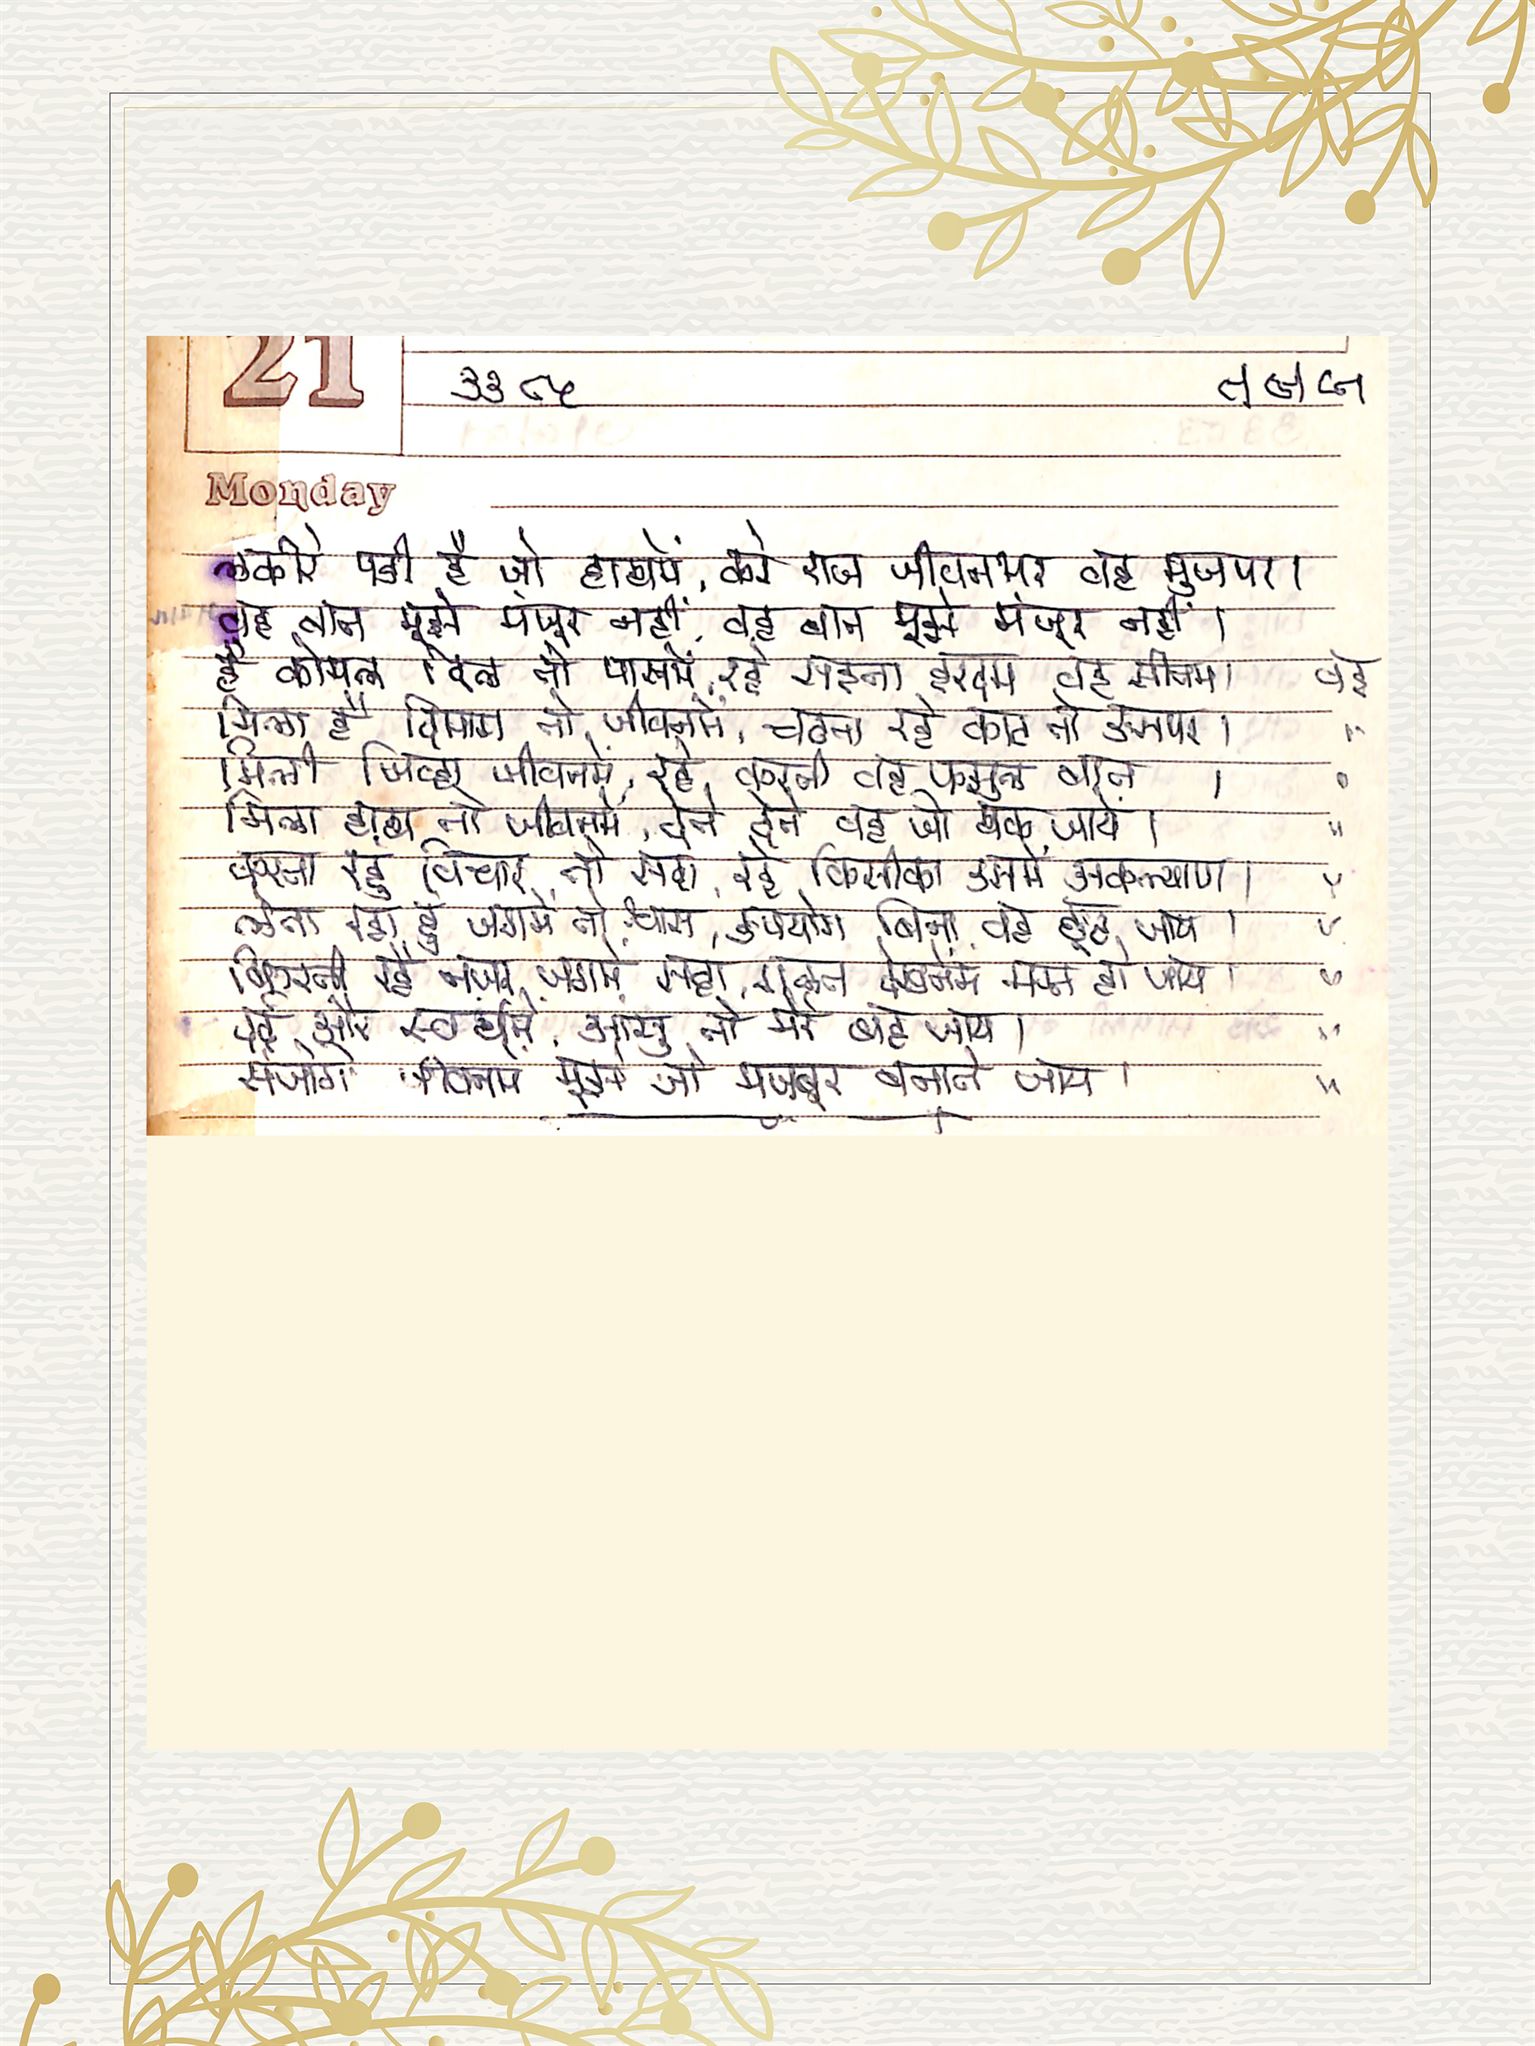 21
Monday
लकीरे पडी है जो हाथोमें, करे राज जीवनभर वह मुजपर।
वह बात मूझे मंजूर नहीं, वह बात मूझे मंजूर नहीं।
है कोमल दिल तो पासमें, रहे सहता हरदम वह सीतम। वह
मिला है दिमाग तो जीवनमें, चढता रहे काट तो उसपर। "
मिली जिव्हा जीवनमें, रहे करती वह फझुल बात । "
मिला हाथ तो जीवनमें, देते देते वह जो थक जाये। "
करता रहु विचार तो सदा, रहे किसीका उसमें अकल्याण। "
लेता रहा हु जगमें तो श्वास, उपयोग बिना वह छूट जाय। "
फिरती रहे नजर जगमें सदा, देखनेमें मस्त हो जाय। "
दर्द और स्वार्थमें, आंसु तो मेरे बह जाय। "
संजोग जीवनमें मूझे जो मजबूर बनाते जाय। "